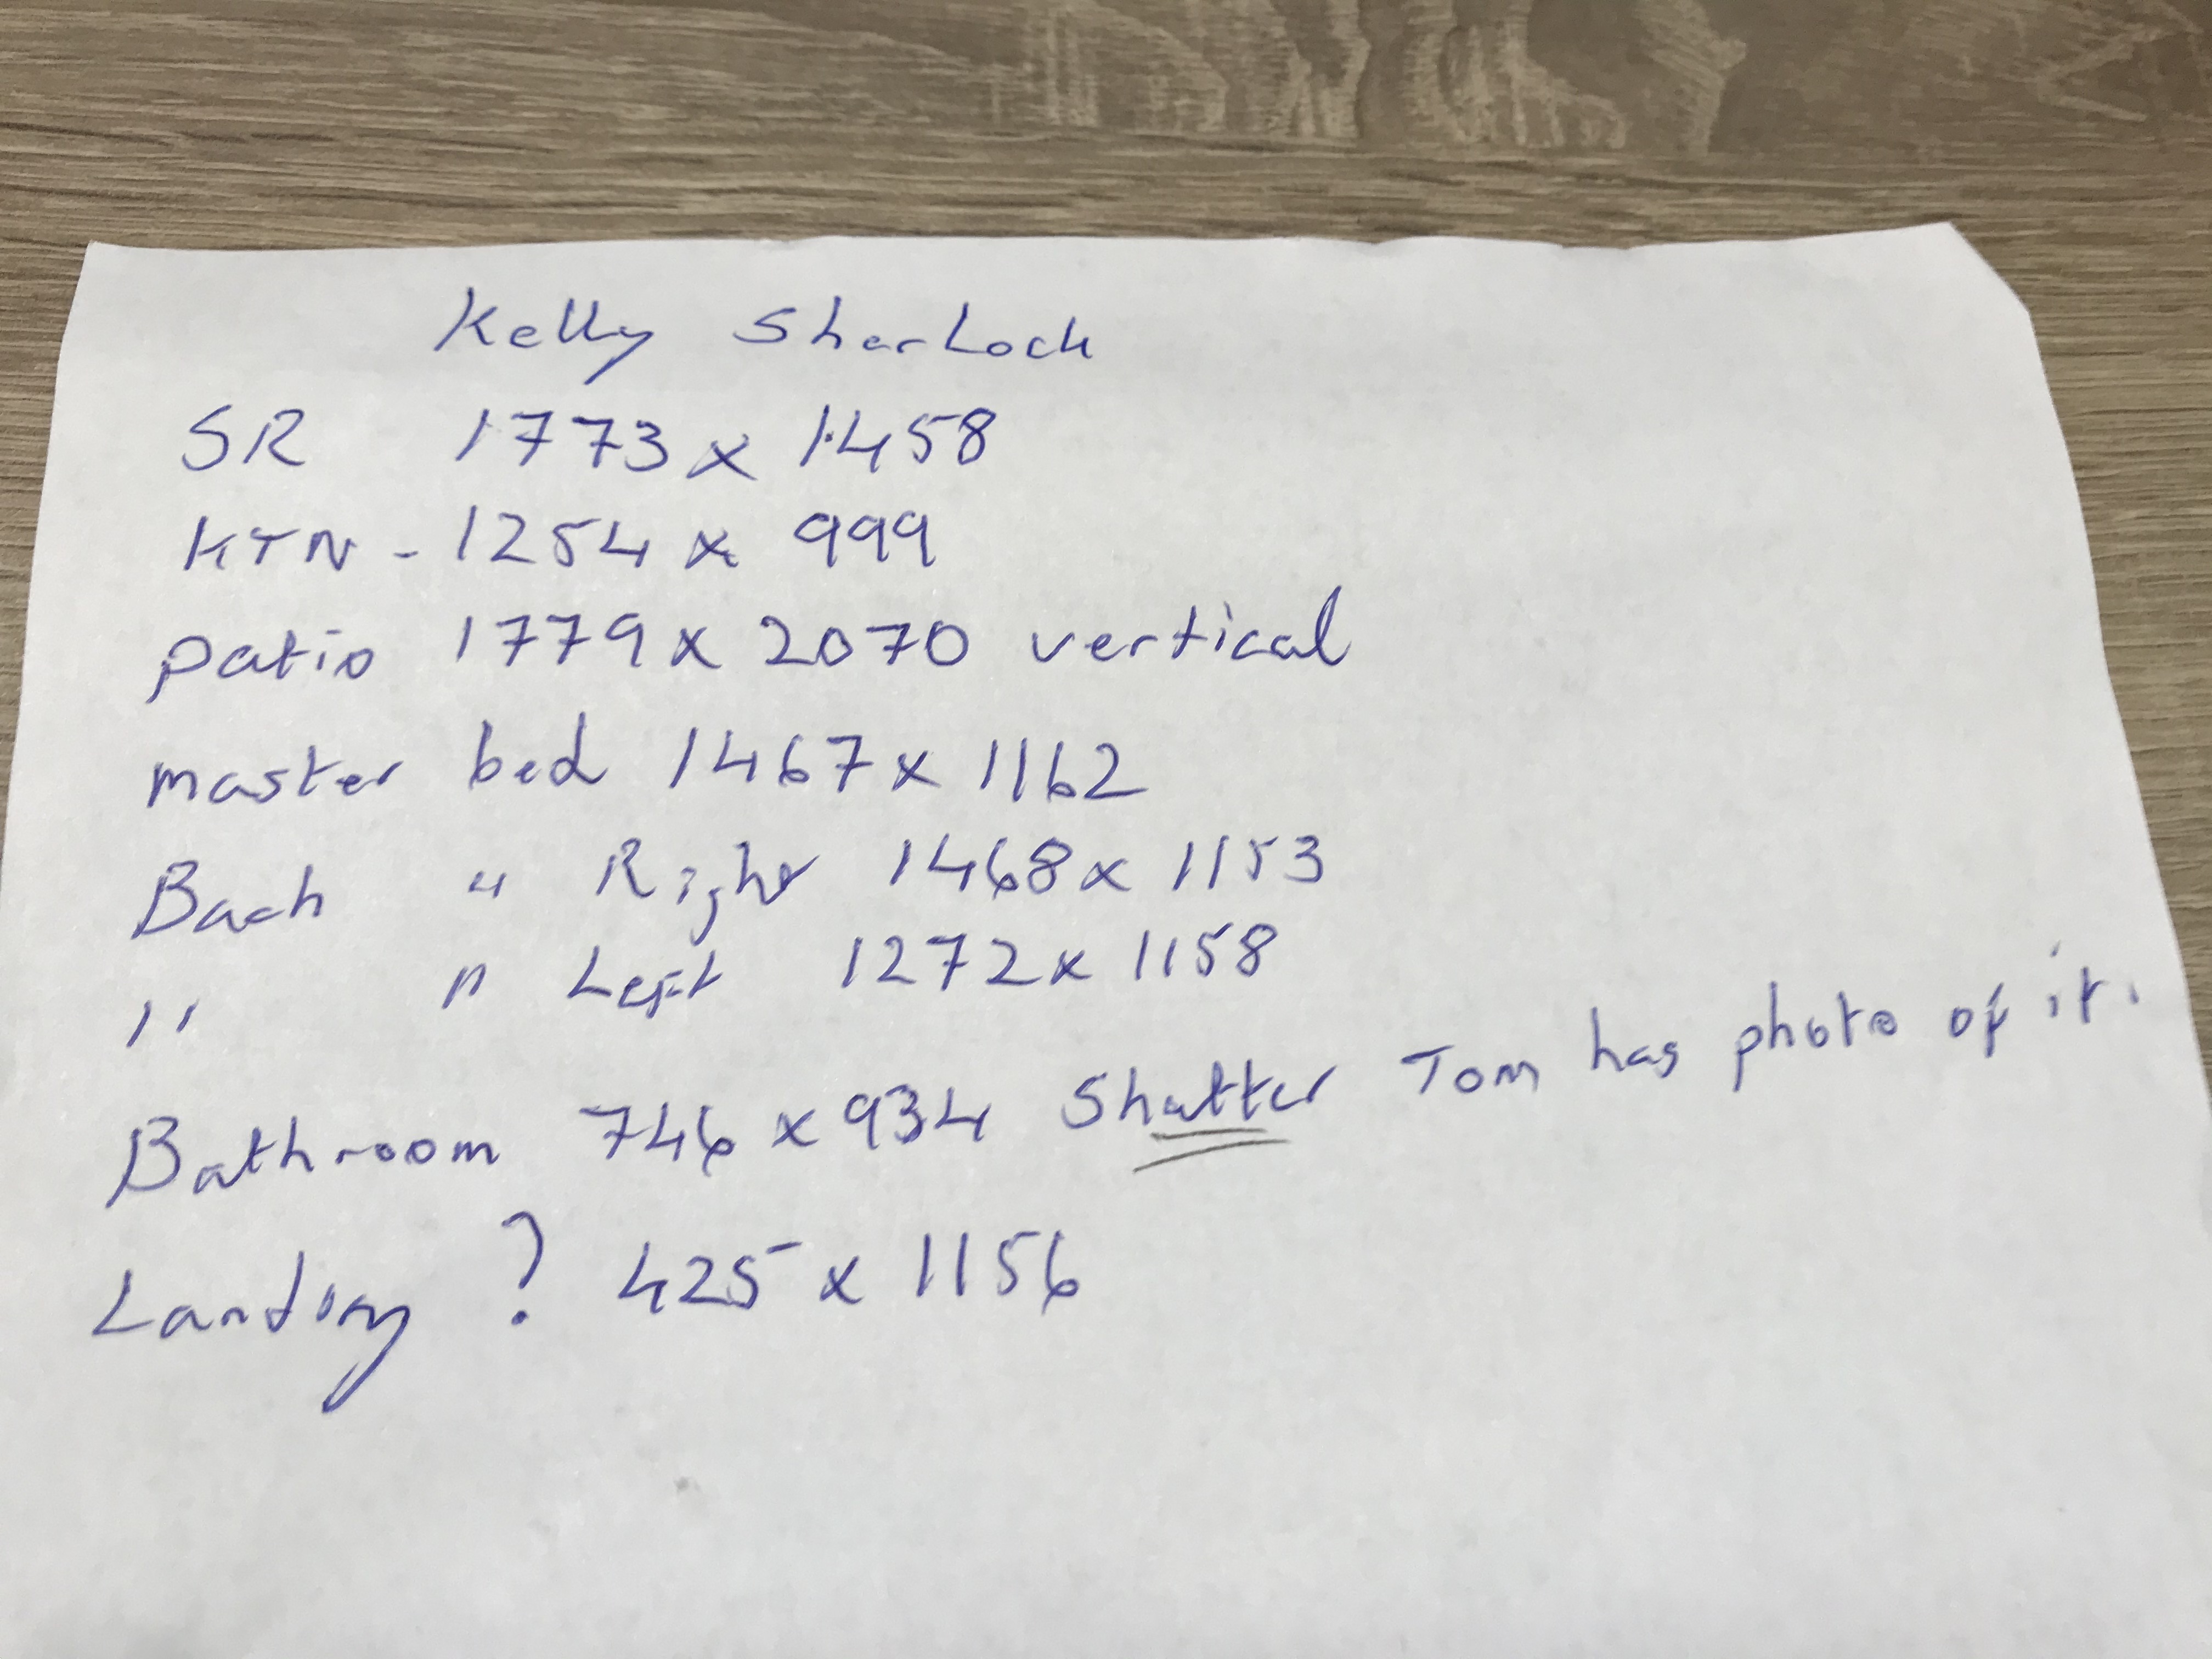 Kelly Sherlock
SR 1773 x 1458
KTN - 1254 x 999
patio 1779 x 2070 vertical
master bed 1467 x 1162
Back " Right 1468 x 1153
" " Left 1272 x 1158
Bathroom 746 x 934 Shutter Tom has photo of it.
Landing ? 425 x 1156